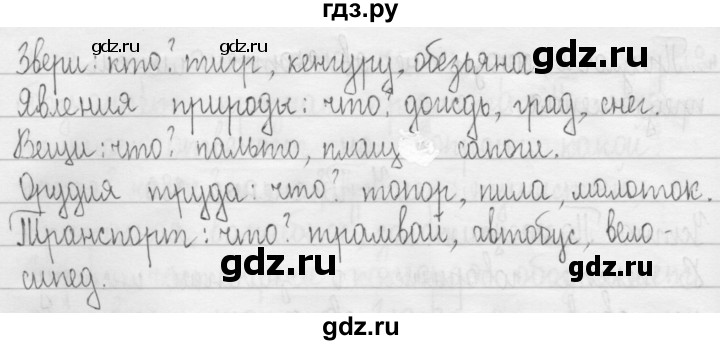 гдз.ру
Звери: кто? тигр, кенгуру, обезьяна
gdz.ru gdz.ru
Явления природы: что? дождь, град, снег.
gdz.ru
Вещи: что? пальто, плащ сапоги.
gdz.ru gdz.ru
Орудия труда: что? топор, пила, молоток.
gdz.ru
Транспорт: что? трамвай, автобус, вело-
gdz.ru gdz.ru
сипед.
gdz.ru